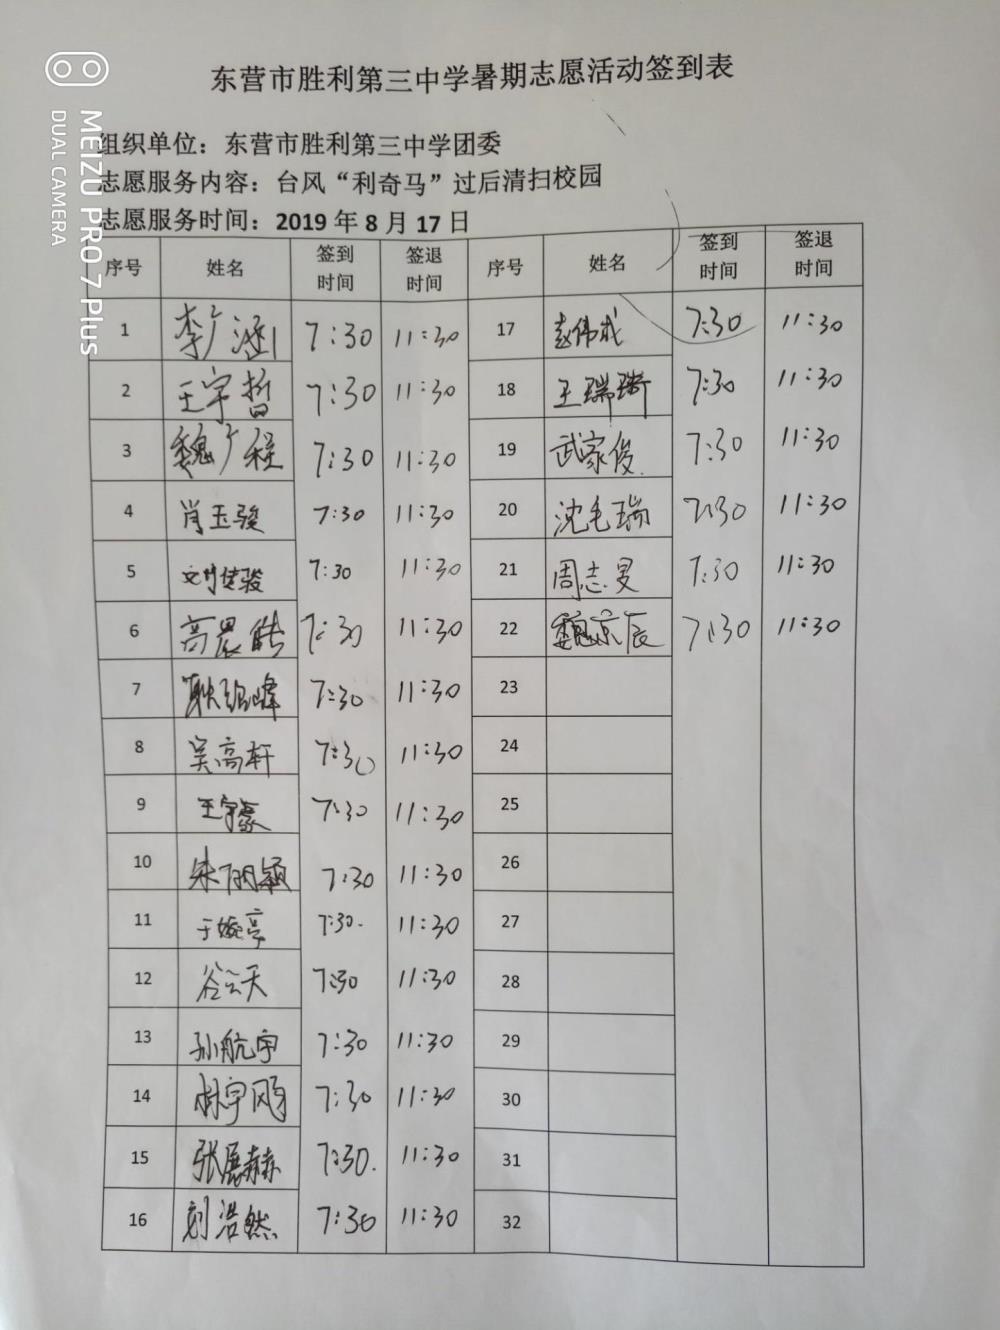 东营市胜利第三中学暑期志愿活动签到表
组织单位：东营市胜利第三中学团委
志愿服务内容：台风“利奇马”过后清扫校园
志愿服务时间：2019 年 8 月 17 日
MEIZU PRO 7 Plus
DUAL CAMERA
序号 姓名 签到时间 签退时间 序号 姓名 签到时间 签退时间
1 李广涵 7:30 11:30 17 赵伟成 7:30 11:30
2 王宇哲 7:30 11:30 18 王瑞 7:30 11:30
3 魏广程 7:30 11:30 19 武家俊 7:30 11:30
4 肖玉骏 7:30 11:30 20 沈毛瑞 7:30 11:30
5 刘佳骏 7:30 11:30 21 周志旻 7:30 11:30
6 高晨皓 7:30 11:30 22 魏京辰 7:30 11:30
7 耿绍峰 7:30 11:30 23
8 吴高轩 7:30 11:30 24
9 王宇豪 7:30 11:30 25
10 朱丽颖 7:30 11:30 26
11 于婉亭 7:30 11:30 27
12 谷云天 7:30 11:30 28
13 孙航宇 7:30 11:30 29
14 林宇 7:30 11:30 30
15 张展赫 7:30 11:30 31
16 刘浩然 7:30 11:30 32